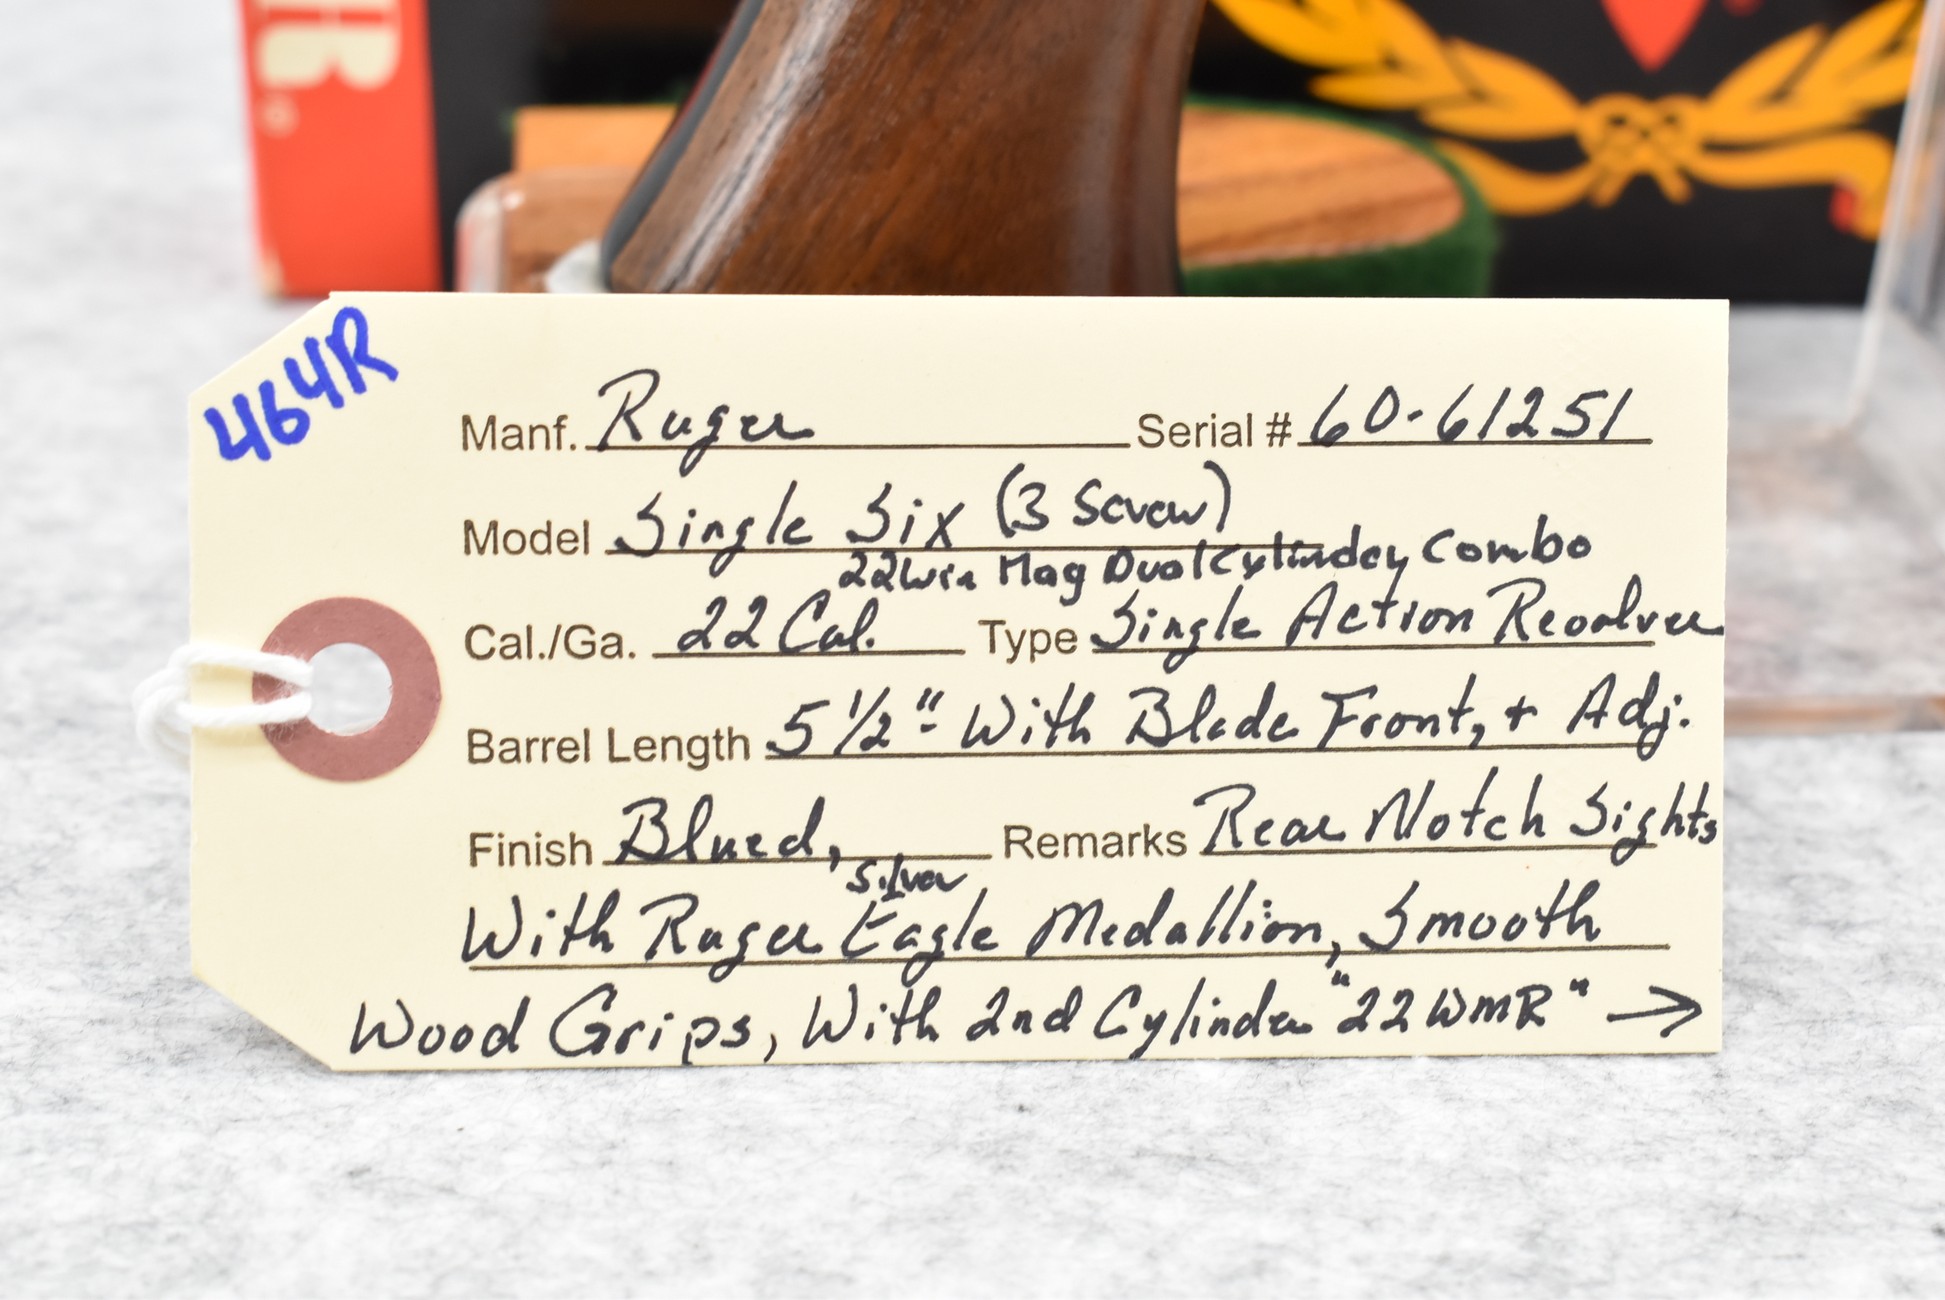 R®
464R
Manf. Ruger Serial # 60-61251
Model Single Six (3 Screw)
22 Win Mag Dual Cylinder Combo
Cal./Ga. 22 Cal. Type Single Action Revolver
Barrel Length 5 1/2" With Blade Front, + Adj.
Finish Blued, Remarks Rear Notch Sights
Silver
With Ruger Eagle Medallion, Smooth
Wood Grips, With 2nd Cylinder "22 WMR" →